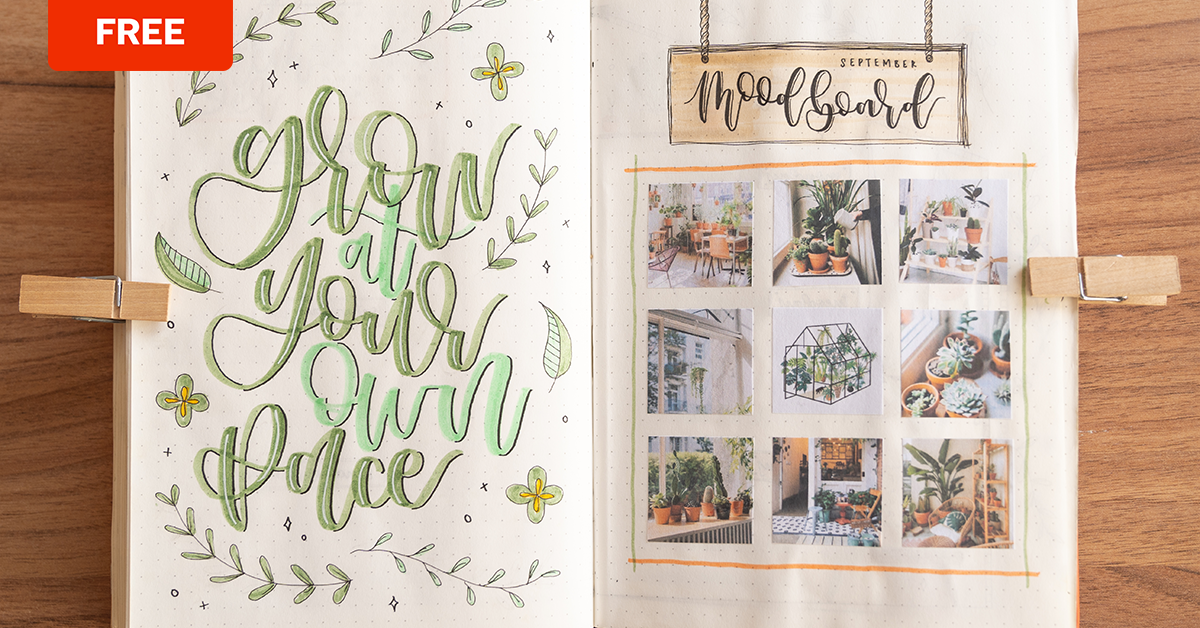 FREE
grow
at
your
own
pace
SEPTEMBER
Moodboard